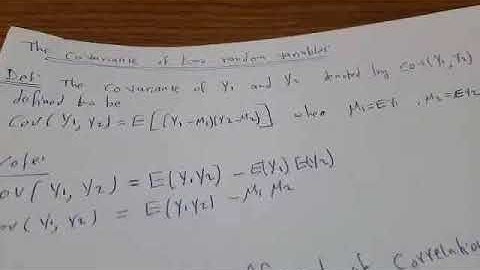 The Covariance of two random variables
Def: The covariance of Y1 and Y2 denoted by Cov(Y1, Y2)
defined to be
Cov(Y1, Y2) = E[(Y1-M1)(Y2-M2)] when M1=EY1, M2=EY2
Note:
Cov(Y1, Y2) = E(Y1Y2) - E(Y1)E(Y2)
Cov(Y1, Y2) = E(Y1Y2) - M1 M2
of Correlation